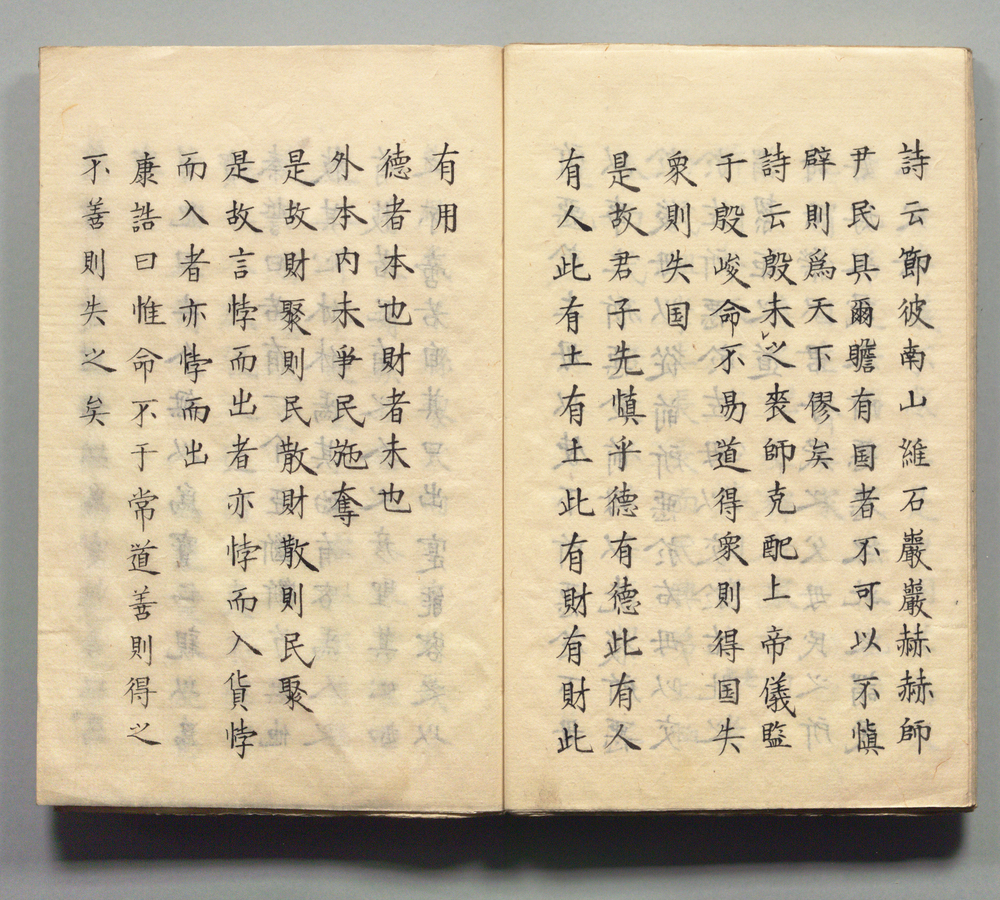 詩云節彼南山維石巖巖赫赫師
尹民具爾瞻有国者不可以不慎
辟則爲天下僇矣
詩云殷未之喪師克配上帝儀監
于殷峻命不易道得衆則得国失
衆則失国
是故君子先慎乎德有德此有人
有人此有土有土此有財有財此
有用
德者本也財者未也
外本内未爭民施奪
是故財聚則民散財散則民聚
是故言悖而出者亦悖而入貨悖
而入者亦悖而出
康誥曰惟命不于常道善則得之
不善則失之矣